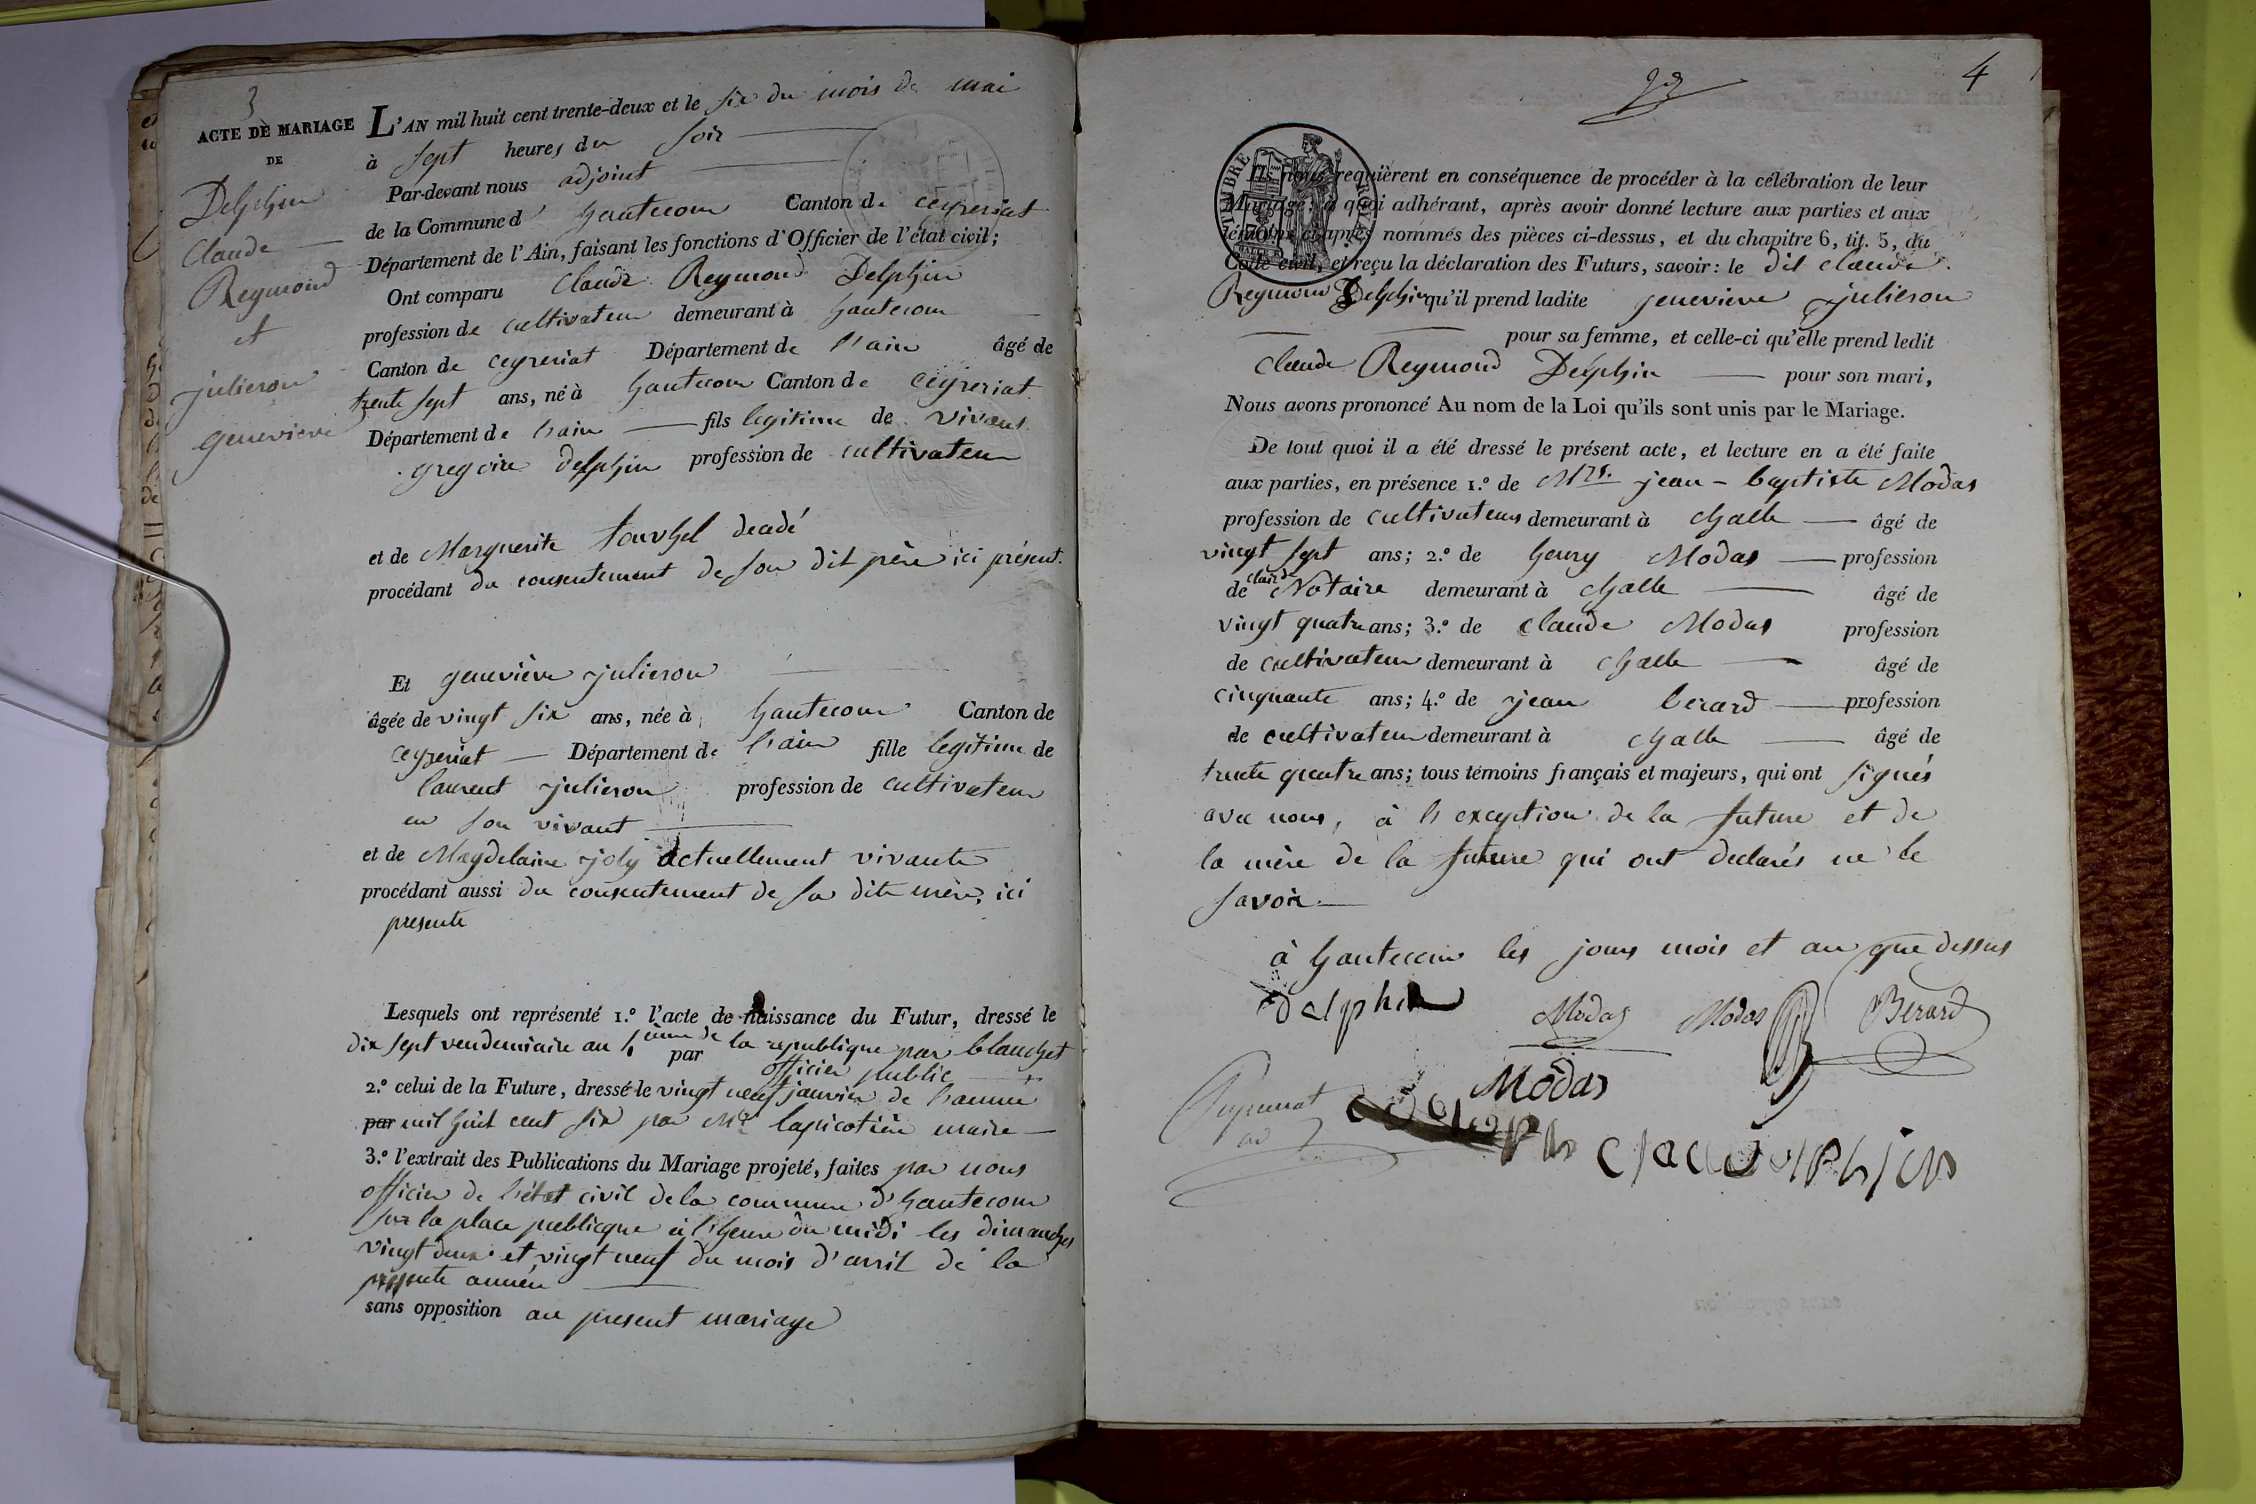 3
ACTE DE MARIAGE
DE
Delphin
Claude
Reymond
et
julieron
genevieve
L'AN mil huit cent trente-deux et le six du mois de mai
à sept heures du soir
Par-devant nous adjoint
de la Commune d'hautecour Canton de ceyzeriat
Département de l'Ain, faisant les fonctions d'Officier de l'état civil;
Ont comparu Claude Reymond Delphin
profession de cultivateur demeurant à hautecour
Canton de ceyzeriat Département de l'ain âgé de
trente sept ans, né à hautecour Canton de ceyzeriat
Département de l'ain fils legitime de vivant
gregoire delphin profession de cultivateur
et de Marguerite decedé
procédant du consentement de son dit père ici présent.
Et geneviève julieron
âgée de vingt six ans, née à hautecour Canton de
ceyzeriat Département de l'ain fille legitime de
laurent julieron profession de cultivateur
en son vivant
et de Magdelaine joly actuellement vivante
procédant aussi du consentement de sa dite mère, ici
presente
Lesquels ont représenté 1.º l'acte de naissance du Futur, dressé le
dix sept vendemiaire an de la republique par blanchet
par officier public
2.º celui de la Future, dressé le vingt neuf janvier de l'année
par mil huit cent six par Mr lapicotière maire
3.º l'extrait des Publications du Mariage projeté, faites par nous
officier de l'état civil de la commune d'hautecour
sur la place publique à l'heure du midi les dimanches
vingt deux et vingt neuf du mois d'avril de la
presente année
sans opposition au present mariage
4
TIMBRE ROYAL
70
Ils nous requièrent en conséquence de procéder à la célébration de leur
Mariage: à quoi adhérant, après avoir donné lecture aux parties et aux
témoins ci-après nommés des pièces ci-dessus, et du chapitre 6, tit. 5, du
Code civil, et reçu la déclaration des Futurs, savoir: le dit claude
Reymond Delphin qu'il prend ladite genevieve julieron
pour sa femme, et celle-ci qu'elle prend ledit
claude Reymond Delphin pour son mari,
Nous avons prononcé Au nom de la Loi qu'ils sont unis par le Mariage.
De tout quoi il a été dressé le présent acte, et lecture en a été faite
aux parties, en présence 1.º de Mrs. jean-baptiste Modas
profession de cultivateurs demeurant à challe âgé de
vingt sept ans; 2.º de henry Modas profession
de clerc de Notaire demeurant à challe âgé de
vingt quatre ans; 3.º de claude Modas profession
de cultivateur demeurant à challe âgé de
cinquante ans; 4.º de jean berard profession
de cultivateur demeurant à challe âgé de
trente quatre ans; tous témoins français et majeurs, qui ont signés
avec nous, à l'exception de la future et de
la mère de la future qui ont declarés ne le
savoir.
à hautecour les jours mois et an que dessus
delphin Modas Modas Berard
Modas